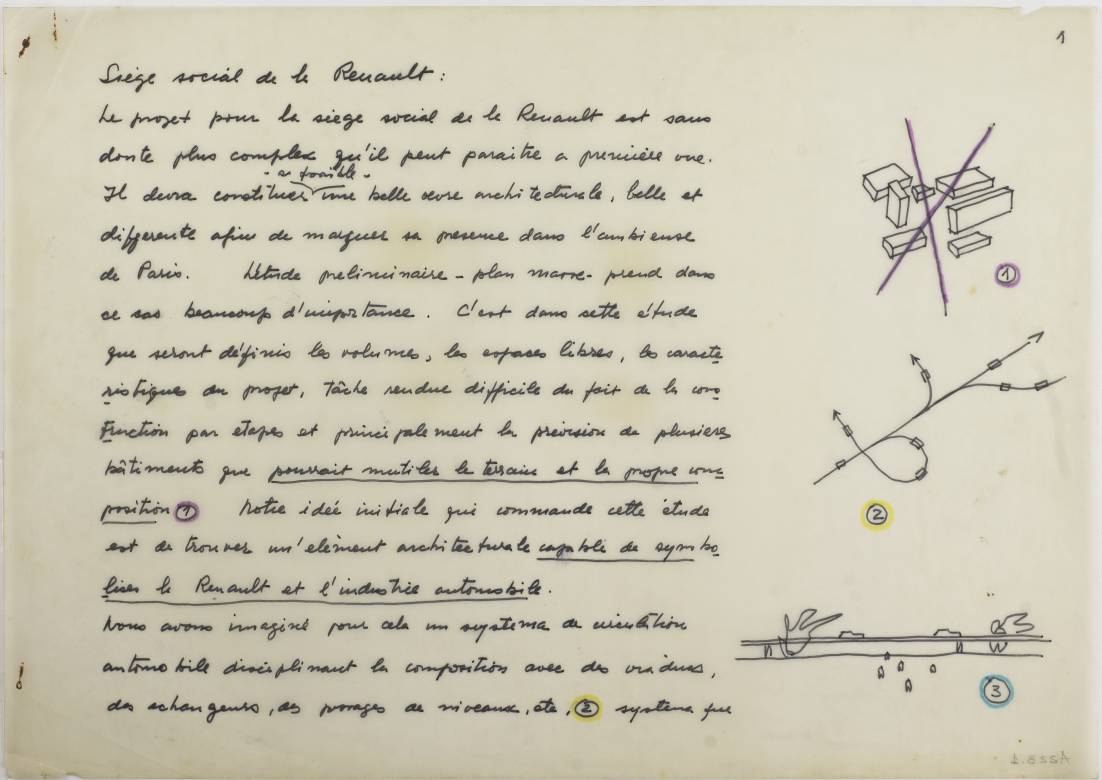 1
Siège social de la Renault :
Le projet pour la siege social de la Renault est sans
doute plus complex qu'il peut paraitre a première vue.
- si possible -
Il devra constituer une belle œvre architecturale, belle et
differente afin de marquer sa presence dans l'ambiense
de Paris. L'étude preliminaire - plan masse - prend dans
ce sas beaucoup d'importance. C'est dans sette étude
que seront définis les volumes, les espases libres, les caracte
ristiques du projet, tâche rendue difficile du fait de la cons
truction par etapes et principalement la prévision de plusiers
bâtiments que pourrait mutiler le terrain et la propre com
position 1 Notre idée initiale qui commande cette étude
est de trouver un'elément architecturale capable de symbo
liser la Renault et l'industrie automobile.
Nous avons imaginé pour cela un systema de circulation
automobile disciplinant la composition avec des viaducs,
des echangeurs, des passages de niveaux, etc, 2 systema que
1
2
3